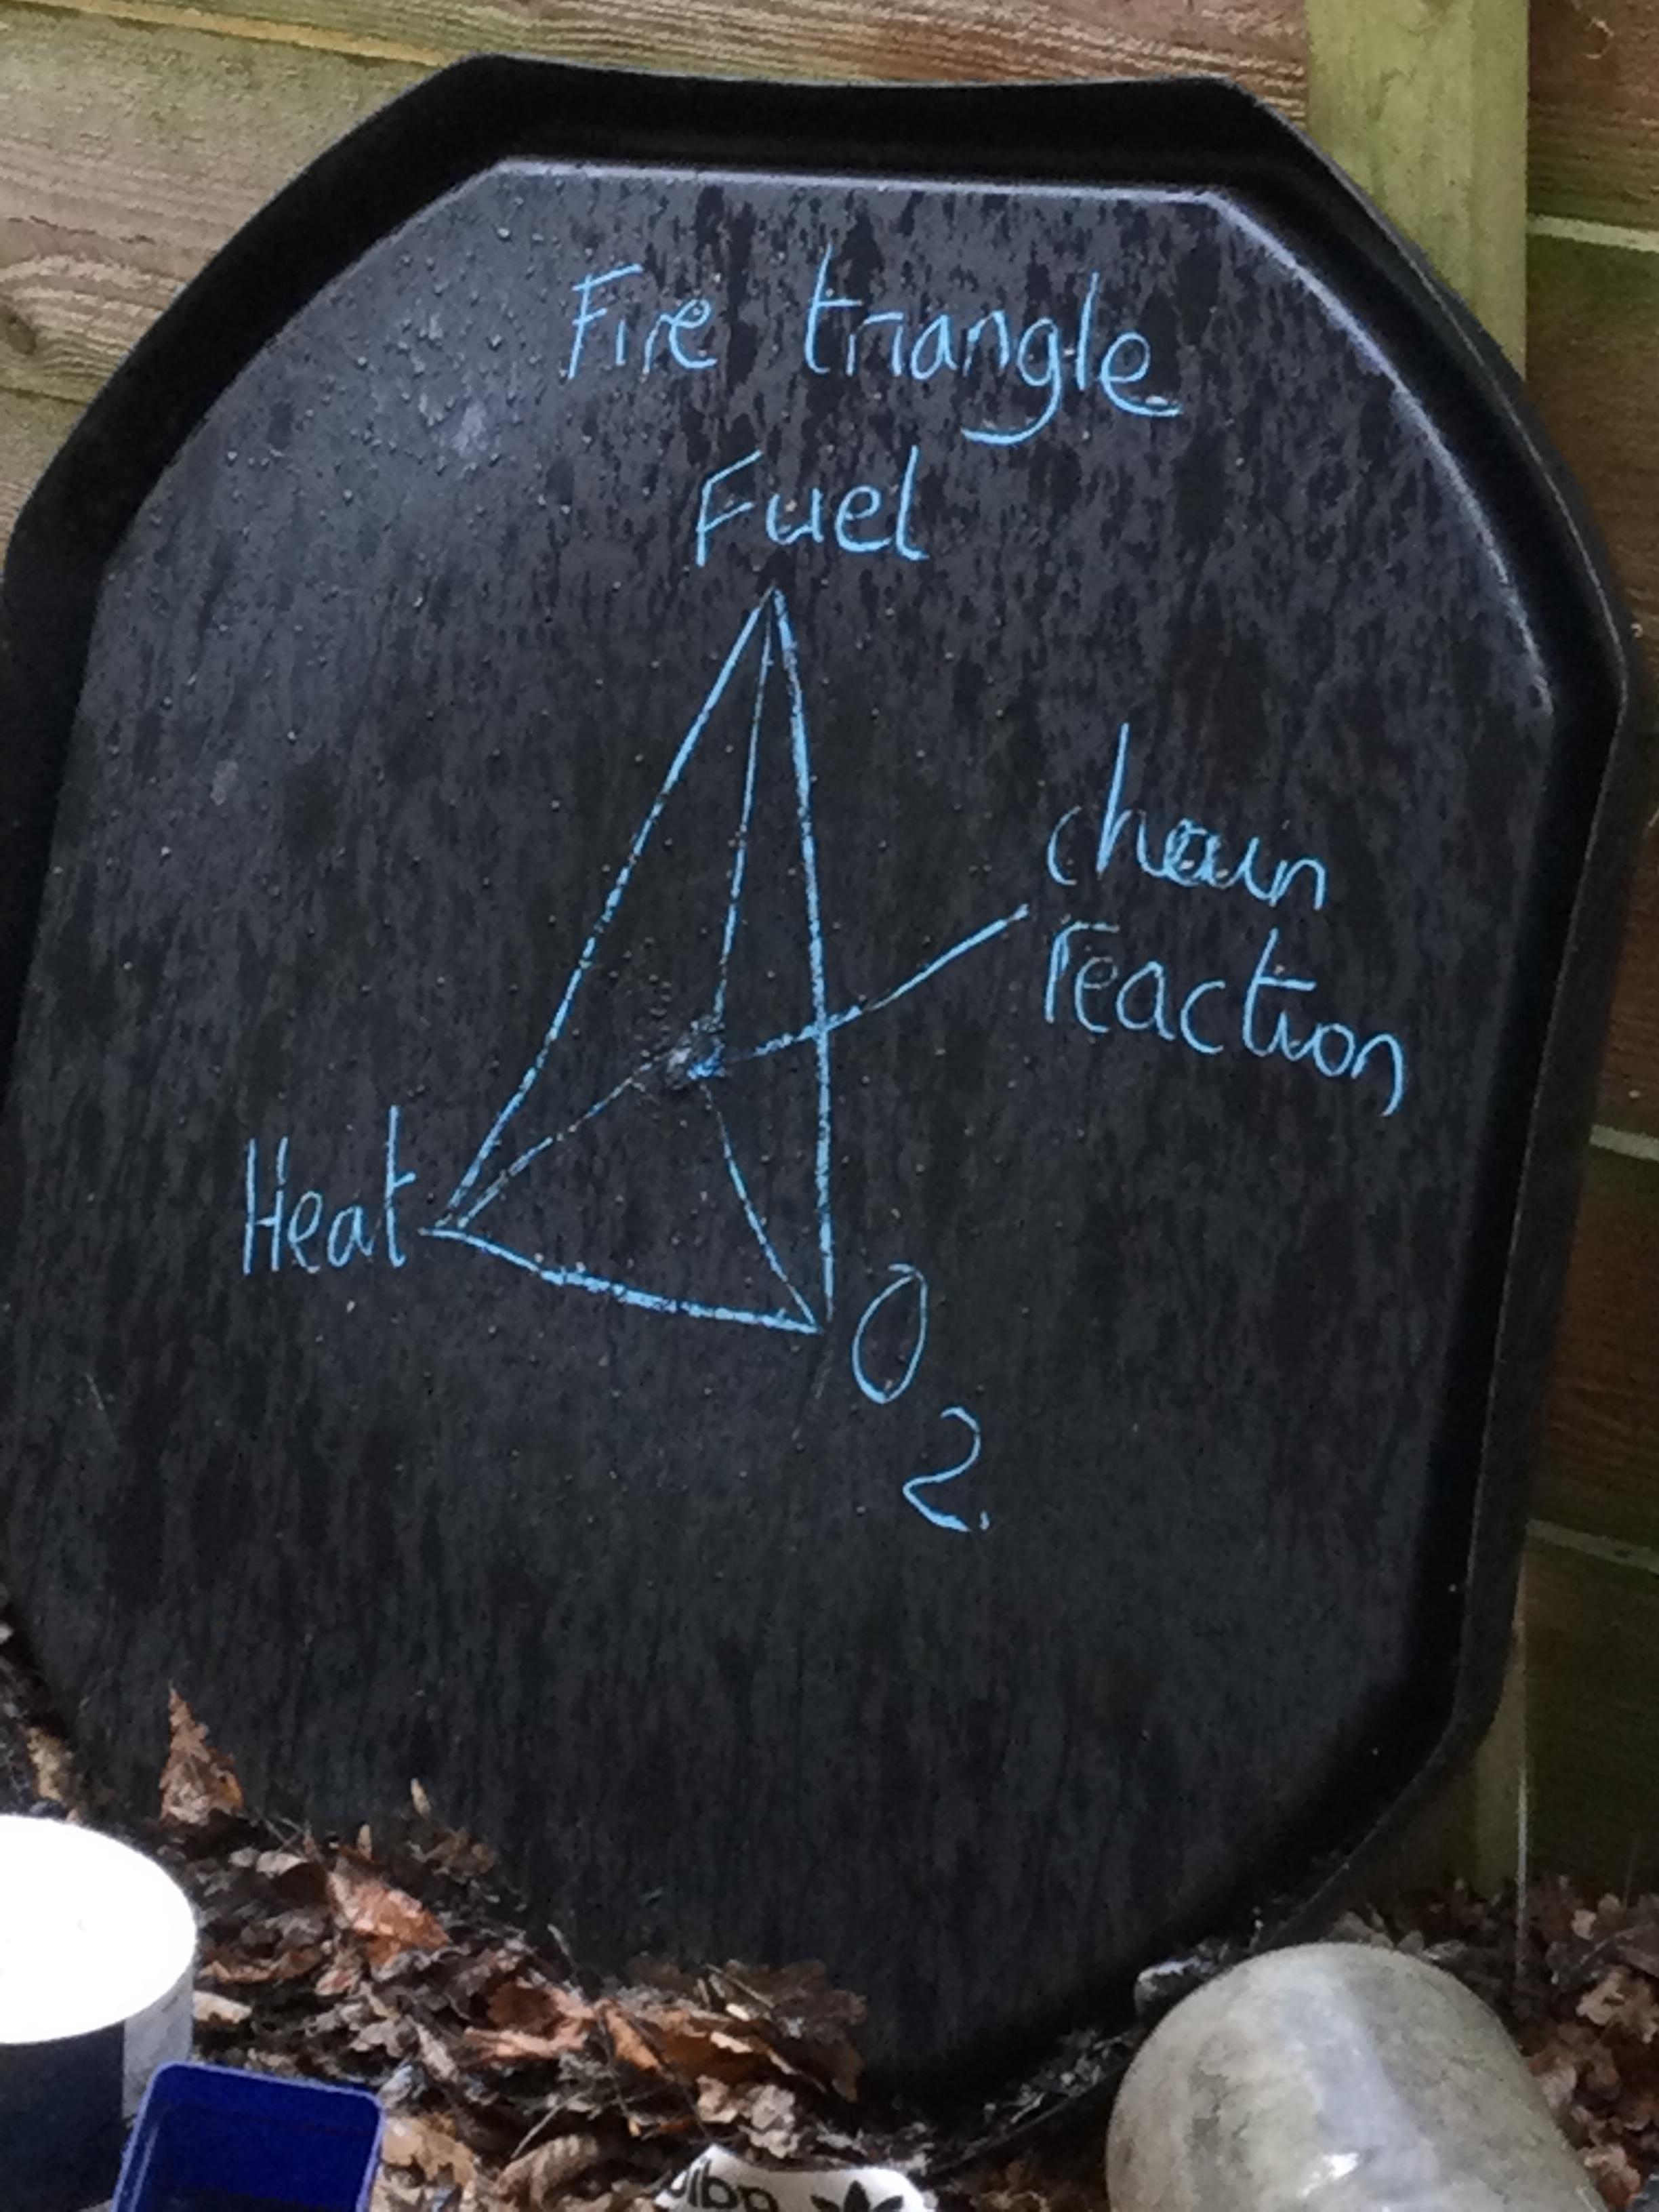 Fire triangle
Fuel
chain
reaction
Heat
O
2.